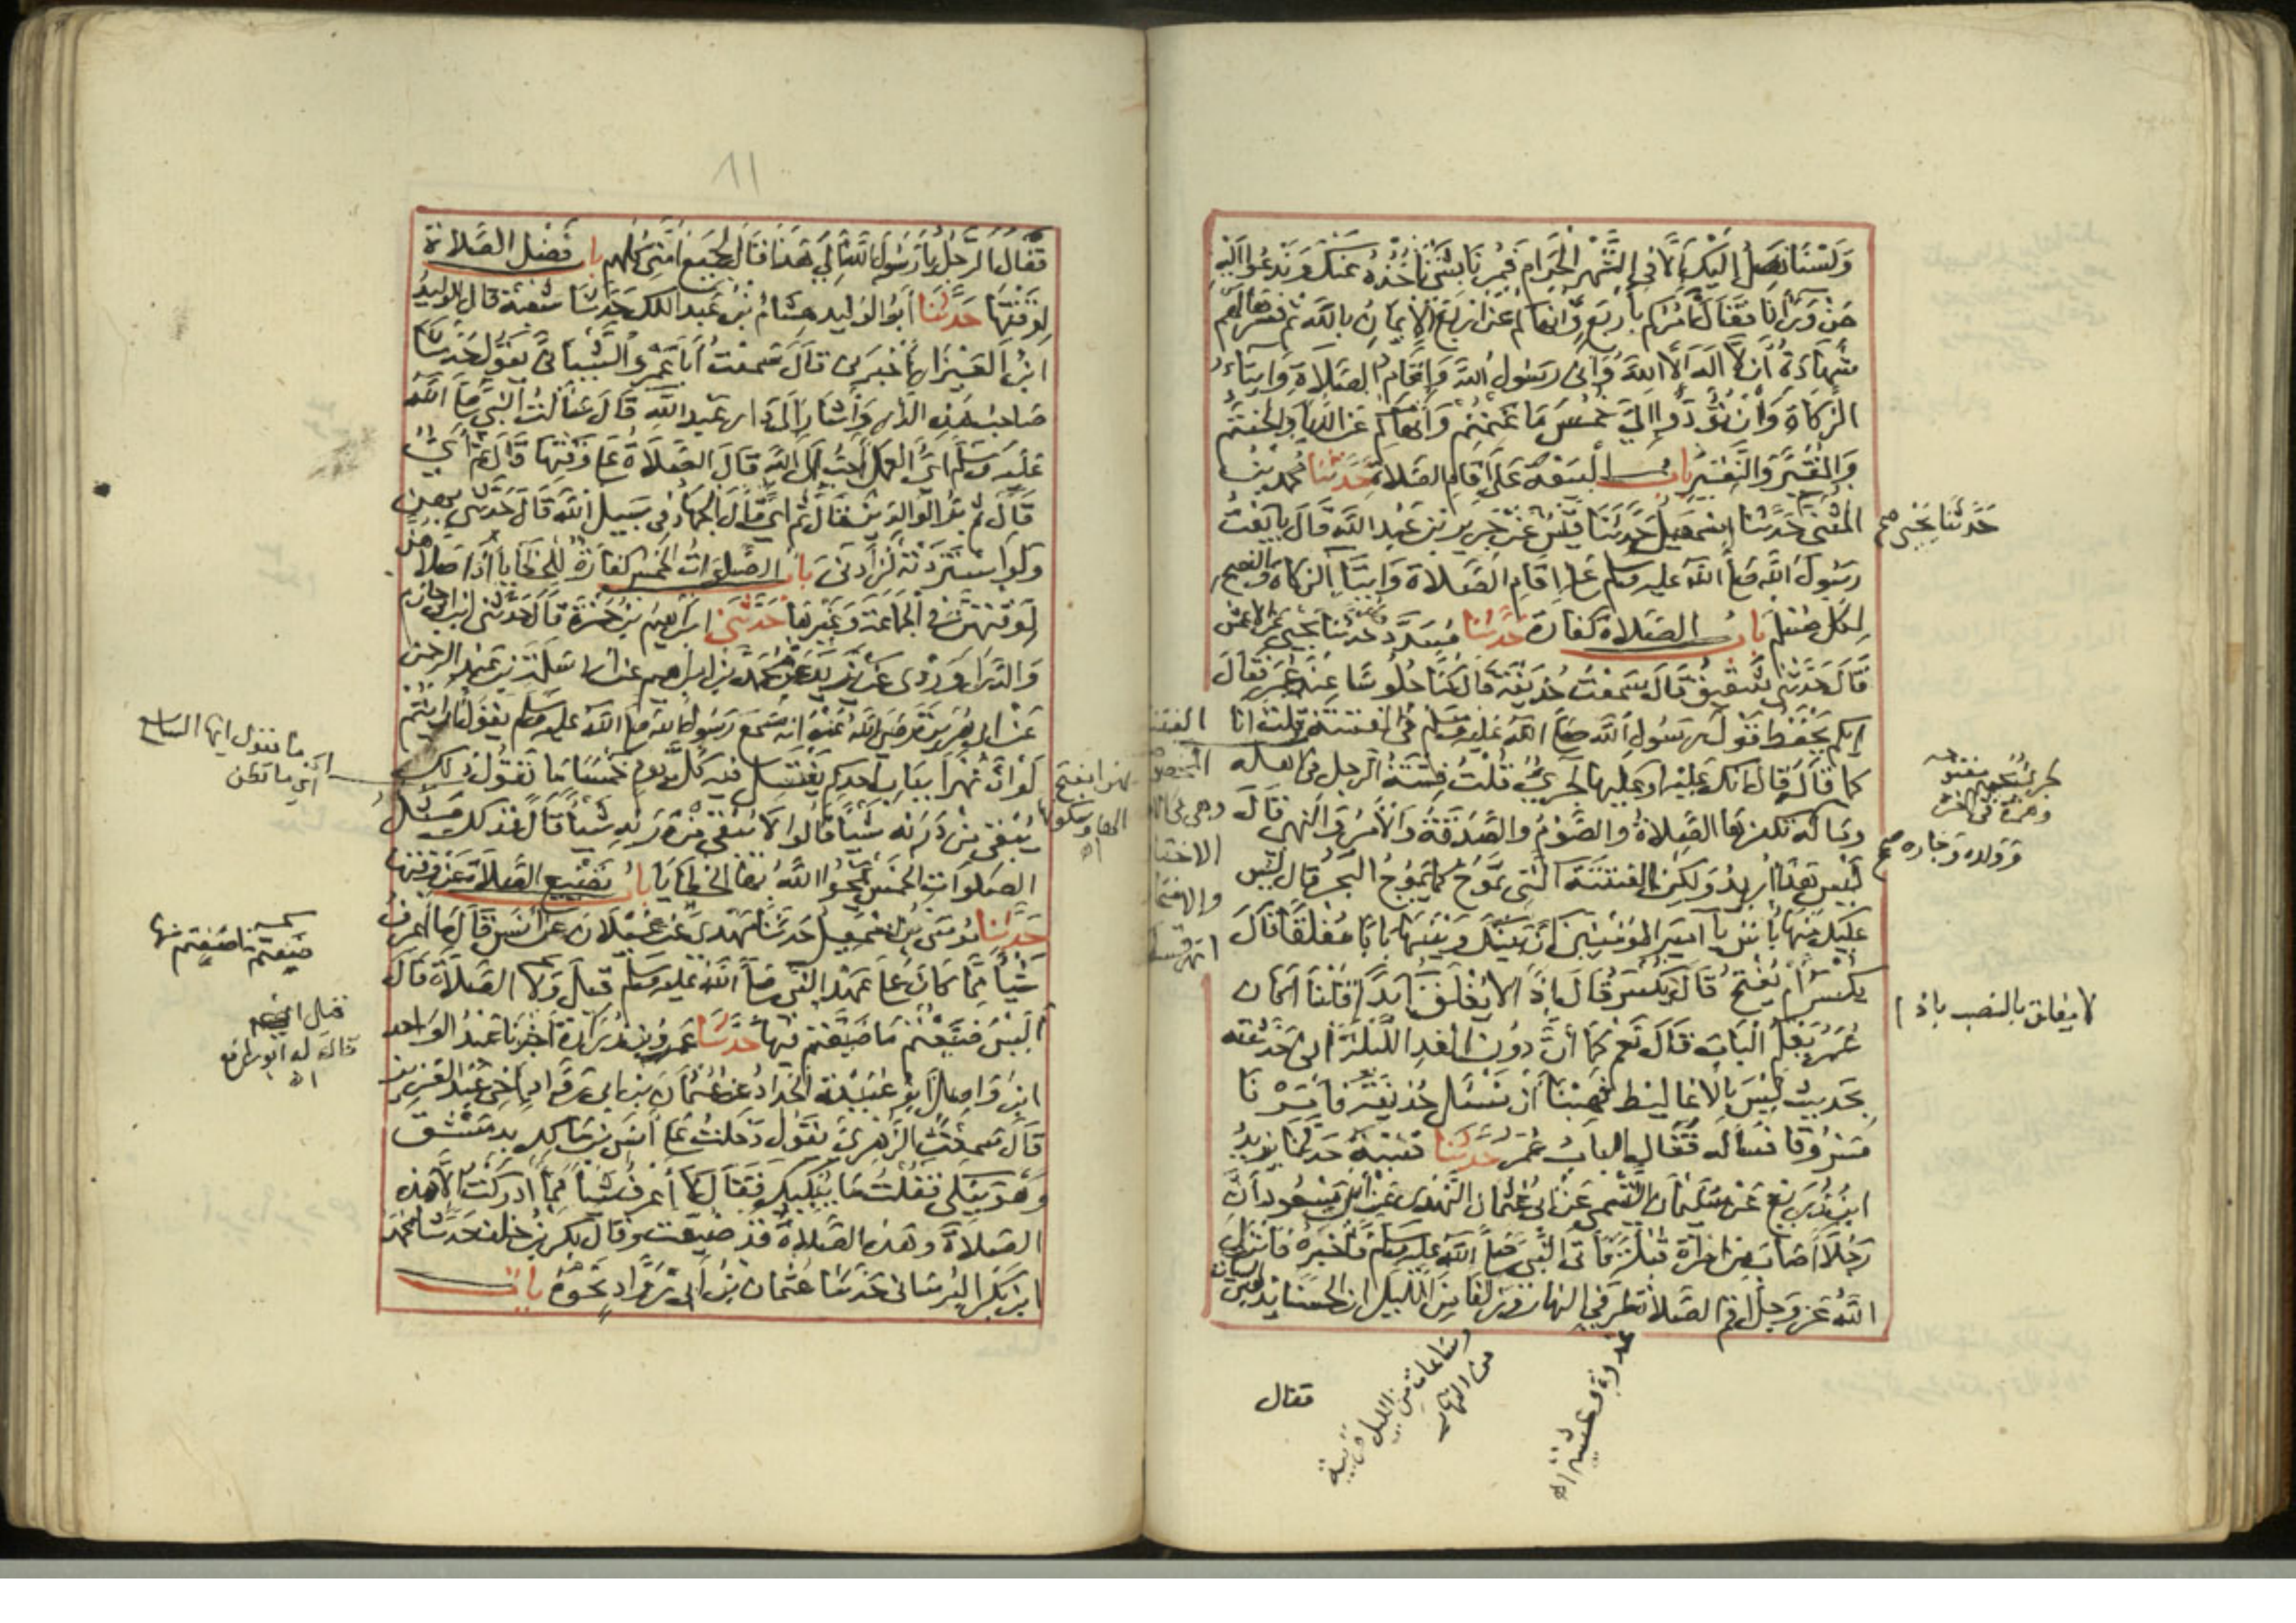 ولسنا نصل إليك إلا في الشهر الحرام فمرنا بشئ ناخذه عنك وندعوا اليه
من ورآنا فقال آمركم بأربع وانهاكم عن اربع الإيمان بالله ثم فسرها لهم
شهادة أن لا اله الا الله واني رسول الله واقام الصلاة وايتاء
الزكاة وأن تؤدوا إلي خمس ما غنمتم وانهاكم عن الدبا والحنتم
والمقير والنقير باب البيعة على اقام الصلاة حدثنا محمد بن
المثنى حدثنا اسمعيل حدثنا قيس عن جرير بن عبد الله قال بايعت
حدثنا يحيى صح
رسول الله صلى الله عليه وسلم على اقام الصلاة وايتاء الزكاة والنصح
لكل مسلم باب الصلاة كفارة حدثنا مسدد حدثنا يحيى عن الاعمش
قال حدثني شقيق قال سمعت حذيفة قال كنا جلوسا عند عمر فقال
ايكم يحفظ قول رسول الله صلى الله عليه وسلم في الفتنة قلت انا
كما قاله قال انك عليه او عليها لجريء قلت فتنة الرجل في اهله
وماله تكفرها الصلاة والصوم والصدقة والأمر والنهي قال
وولده وجاره صح
ليس هذا اريد ولكن الفتنة التي تموج كما يموج البحر قال ليس
عليك منها بأس يا أمير المؤمنين ان بينك وبينها بابا مغلقا قال
يكسر أم يفتح قال يكسر قال إذا لا يغلق ابدا قلنا اكان
لا يغلق بالنصب باذا
عمر يعلم الباب قال نعم كما أن دون الغد الليلة اني حدثته
بحديث ليس بالاغاليط فهبنا أن نسئل حذيفة فأمرنا
مسروقا فسأله فقال الباب عمر حدثنا قتيبة حدثنا يزيد
ابن زريع عن سليمان التيمي عن ابي عثمان النهدي عن ابن مسعود أن
رجلا أصاب من امرأة قبلة فأتى النبي صلى الله عليه وسلم فأخبره فانزل
الله عز وجل اقم الصلاة طرفي النهار وزلفا من الليل ان الحسنات يذهبن السيئات
غدوة وعشية اه
وساعات من الليل قريبة
من النهار
فقال
٨١
فقال الرجل يا رسول الله ألي هذا قال لجميع أمتي كلهم باب فضل الصلاة
لوقتها حدثنا أبو الوليد هشام بن عبد الملك حدثنا شعبة قال الوليد
ابن العيزار اخبرني قال سمعت أبا عمرو الشيباني يقول حدثنا
صاحب هذه الدار وأشار إلى دار عبد الله قال سألت النبي صلى الله
عليه وسلم اي العمل احب الى الله قال الصلاة على وقتها قال ثم أي
قال ثم بر الوالدين قال ثم اي قال الجهاد في سبيل الله قال حدثني بهن
ولو استزدته لزادني باب الصلوات الخمس كفارة للخطايا إذا صلاهن
لوقتهن في الجماعة وغيرها حدثني ابراهيم بن حمزة قال حدثني ابن ابي حازم
والدراوردي عن يزيد عن محمد بن ابراهيم عن ابي سلمة بن عبد الرحمن
عن ابي هريرة رضي الله عنه انه سمع رسول الله صلى الله عليه وسلم يقول ارايتم
لو ان نهرا بباب احدكم يغتسل فيه كل يوم خمسا ما تقول ذلك
ما تقول ايها السامع
أي ما تظن
نهرا بفتح
الهاء وسكونها
اه
يبقي من درنه شيئا قالوا لا يبقي من درنه شيئا قال فذلك مثل
الصلوات الخمس يمحوا الله بها الخطايا باب تضييع الصلاة عن وقتها
حدثنا موسى بن اسمعيل حدثنا مهدي عن غيلان عن أنس قال ما اعرف
صنعتم ما صنعتم فيها
شيئا مما كان على عهد النبي صلى الله عليه وسلم قيل ولا الصلاة قال
أليس ضيعتم ما ضيعتم فيها حدثنا عمرو بن زرارة اخبرنا عبد الواحد
قاله له ابو رافع
اه
ابن واصل أبو عبيدة الحداد عن عثمان بن ابي رواد اخي عبد العزيز
قال سمعت الزهري يقول دخلت على أنس بن مالك بدمشق
وهو يبكي فقلت ما يبكيك فقال لا أعرف شيئا مما ادركت الا هذه
الصلاة وهذه الصلاة قد ضيعت وقال بكر بن خلف حدثنا محمد
ابن بكر البرساني حدثنا عثمان بن أبي رواد نحوه باب